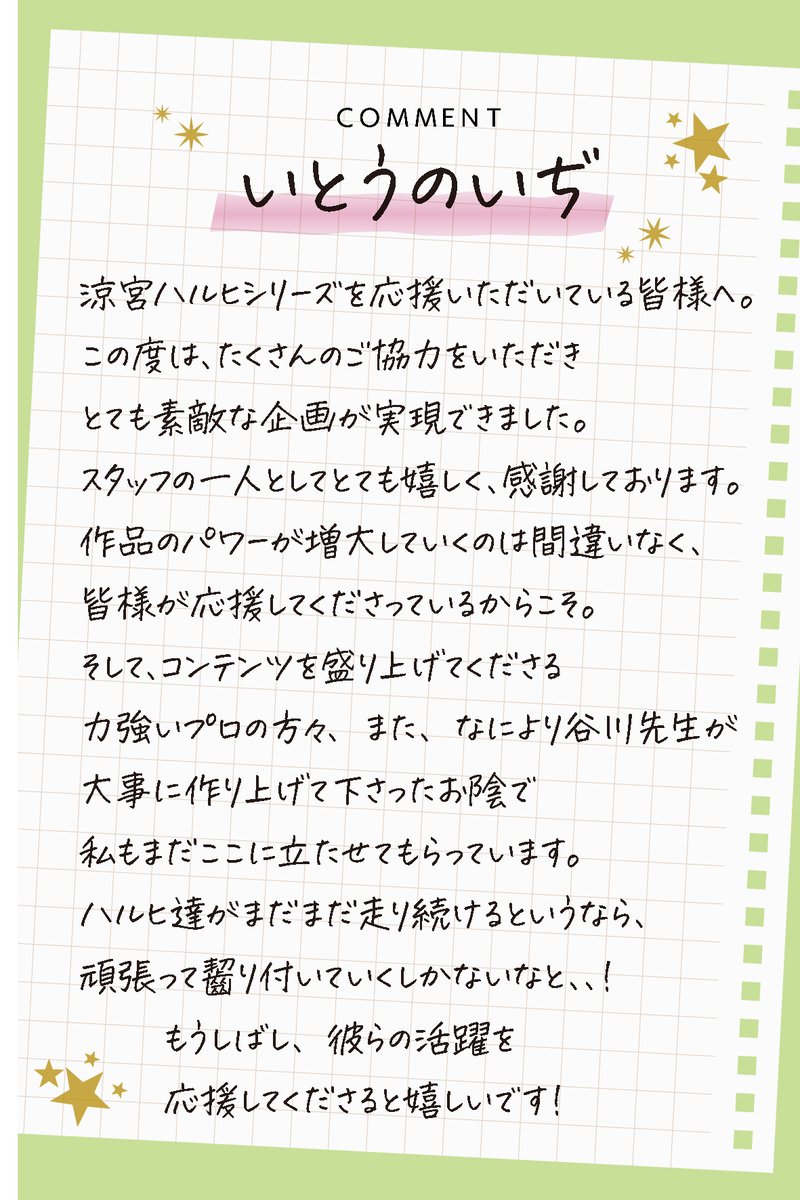 COMMENT
いとうのいぢ
涼宮ハルヒシリーズを応援いただいている皆様へ。
この度は、たくさんのご協力をいただき
とても素敵な企画が実現できました。
スタッフの一人としてとても嬉しく、感謝しております。
作品のパワーが増大していくのは間違いなく、
皆様が応援してくださっているからこそ。
そして、コンテンツを盛り上げてくださる
力強いプロの方々、また、なにより谷川先生が
大事に作り上げて下さったお陰で
私もまだここに立たせてもらっています。
ハルヒ達がまだまだ走り続けるというなら、
頑張って齧り付いていくしかないなと、、!
もうしばし、彼らの活躍を
応援してくださると嬉しいです!